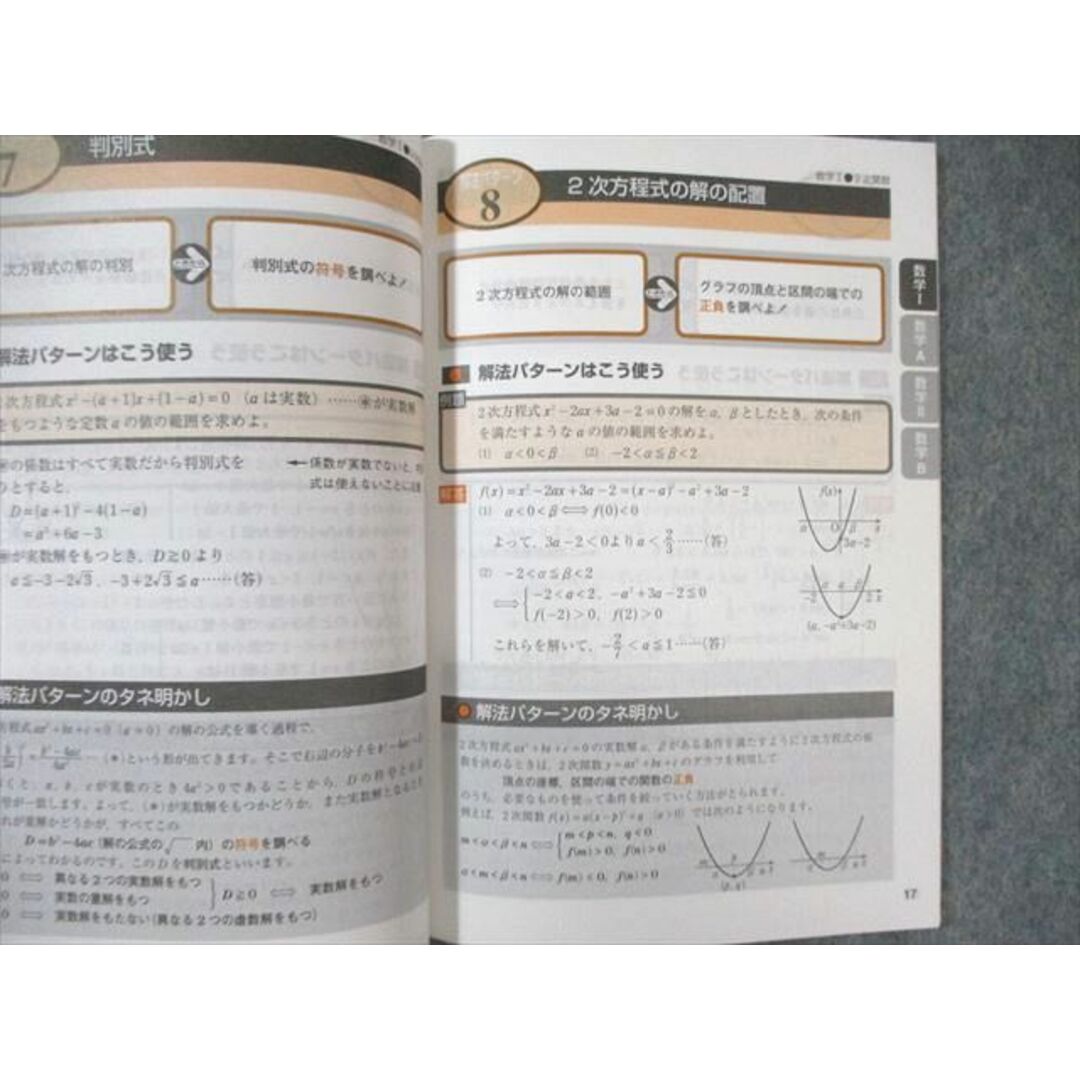 7
判別式
次方程式の解の判別
ときたら
判別式の符号を調べよ!
解法パターンはこう使う
2次方程式x²-(a+1)x+(1-a)=0 (aは実数)……※が実数解
をもつような定数aの値の範囲を求めよ。
※の係数はすべて実数だから判別式を
Dとすると,
←係数が実数でないと,
式は使えないことに注
D=(a+1)²-4(1-a)
=a²+6a-3
※が実数解をもつとき, D≧0より
a≦-3-2√3, -3+2√3≦a……(答)
解法パターンのタネ明かし
方程式ax²+bx+c=0 (a≠0) の解の公式を導く過程で,
…(*)という形が出てきます。そこで右辺の分子をb²-4ac=D
くと, a, b, cが実数のとき4a²>0であることから, Dの符号と右辺
号が一致します。よって, (*)が実数解をもつかどうか, また実数解となるとき
れが重解かどうかが, すべてこの
D=b²-4ac (解の公式の√ 内) の符号を調べる
によってわかるのです。このDを判別式といいます。
0 ⟺ 異なる2つの実数解をもつ
0 ⟺ 実数の重解をもつ
D≧0 ⟺ 実数解をもつ
0 ⟺ 実数解をもたない(異なる2つの虚数解をもつ)
解法パターン
8
2次方程式の解の配置
数学Ⅰ●2次関数
2次方程式の解の範囲
ときたら
グラフの頂点と区間の端での
正負を調べよ!
数学Ⅰ
数学A
数学Ⅱ
数学B
解法パターンはこう使う
例題
2次方程式x²-2ax+3a-2=0の解をα, βとしたとき, 次の条件
を満たすようなaの値の範囲を求めよ。
(1) α<0<β (2) -2<α≦β<2
解答
f(x)=x²-2ax+3a-2=(x-a)²-a²+3a-2
(1) α<0<β⟺f(0)<0
よって, 3a-2<0よりa<2/3……(答)
f(x)
α O β x
3a-2
(2) -2<α≦β<2
⟺{-2<a<2, -a²+3a-2≦0
f(-2)>0, f(2)>0
これらを解いて, -2/7<a≦1……(答)
-2 α a β 2 x
(a, -a²+3a-2)
解法パターンのタネ明かし
2次方程式ax²+bx+c=0の実数解α, βがある条件を満たすように2次方程式の係
数を決めるときは, 2次関数y=ax²+bx+cのグラフを利用して
頂点の座標, 区間の端での関数の正負
のうち, 必要なものを使って条件を絞っていく方法がとられます。
例えば, 2次関数f(x)=a(x-p)²+q (a>0) では次のようになります。
m<α<β<n⟺{m<p<n, q<0
f(m)>0, f(n)>0
α<m<β<n⟺f(m)<0, f(n)>0
(p, q)
17